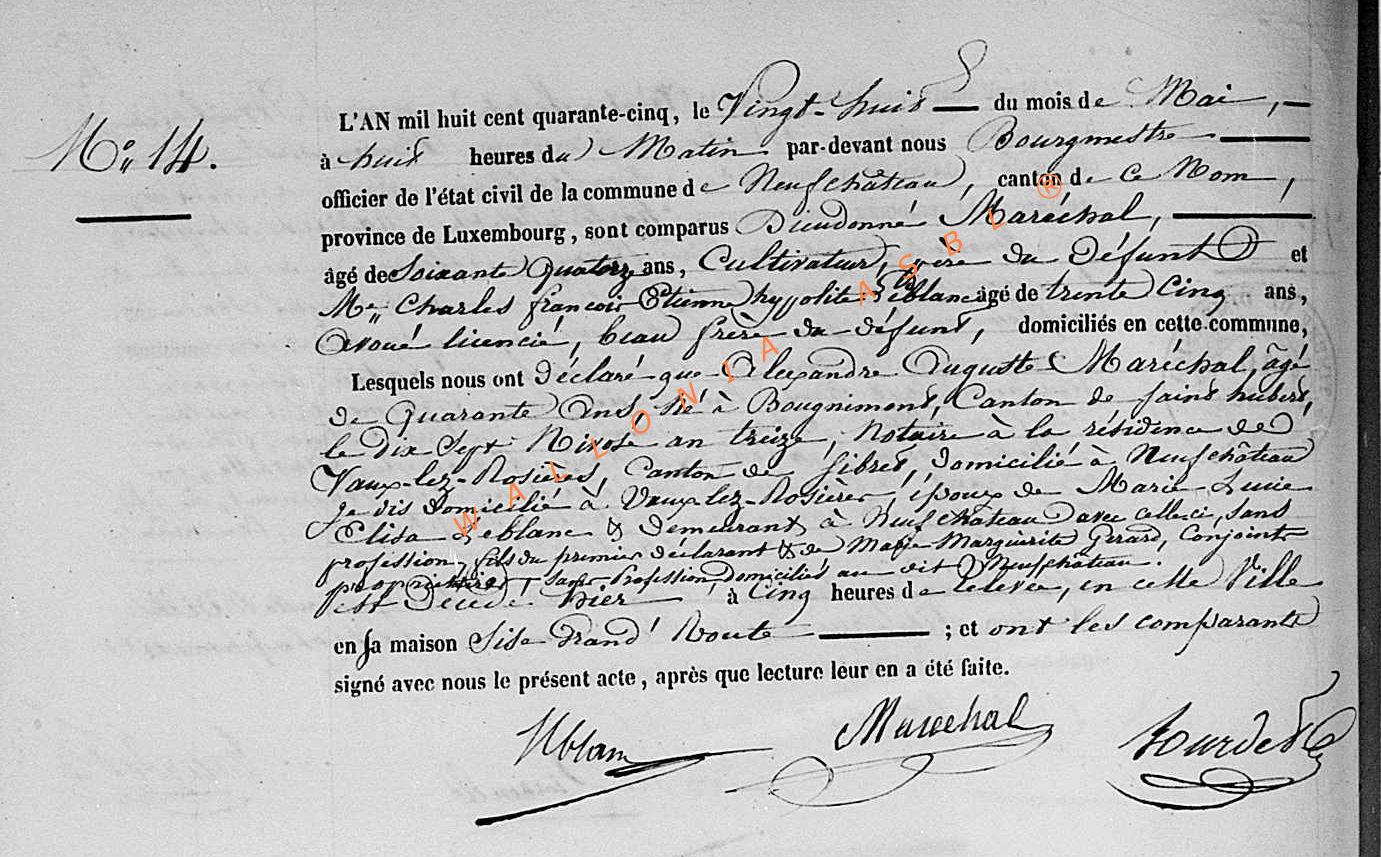 N° 14.
L'AN mil huit cent quarante-cinq, le Vingt-huit du mois de Mai,
à huit heures du Matin par-devant nous Bourgmestre
officier de l'état civil de la commune de Neufchâteau, canton de Ce Nom,
province de Luxembourg, sont comparus Dieudonné Maréchal,
âgé de Soixante Quatorze ans, Cultivateur, père du Défunt et
Me Charles françois Etienne hyppolite Leblanc âgé de trente Cinq ans,
Avoué licencié, beau frère du défunt, domiciliés en cette commune,
Lesquels nous ont déclaré que Alexandre Auguste Maréchal, âgé
de Quarante Ans, né à Bougnimont, Canton de saint hubert,
le dix Sept Nivose an treize, Notaire à la résidence de
Vaux-lez-Rosières, Canton de sibret, domicilié à Neufchâteau
je dis domicilié à Vaux-lez-Rosières, époux de Marie Lucie
Elisa Leblanc & demeurant à Neufchâteau avec celle-ci, sans
profession, fils du premier déclarant & de Marie Marguerite Gerard, Conjoints
propriétaires, sans Profession, domiciliés au dit Neufchâteau.
est décédé hier à Cinq heures de relevée, en cette Ville
en sa maison Sise Grand' Route ; et ont les comparants
signé avec nous le présent acte, après que lecture leur en a été faite.
Leblanc Marechal
WALLONIA ASBL ®